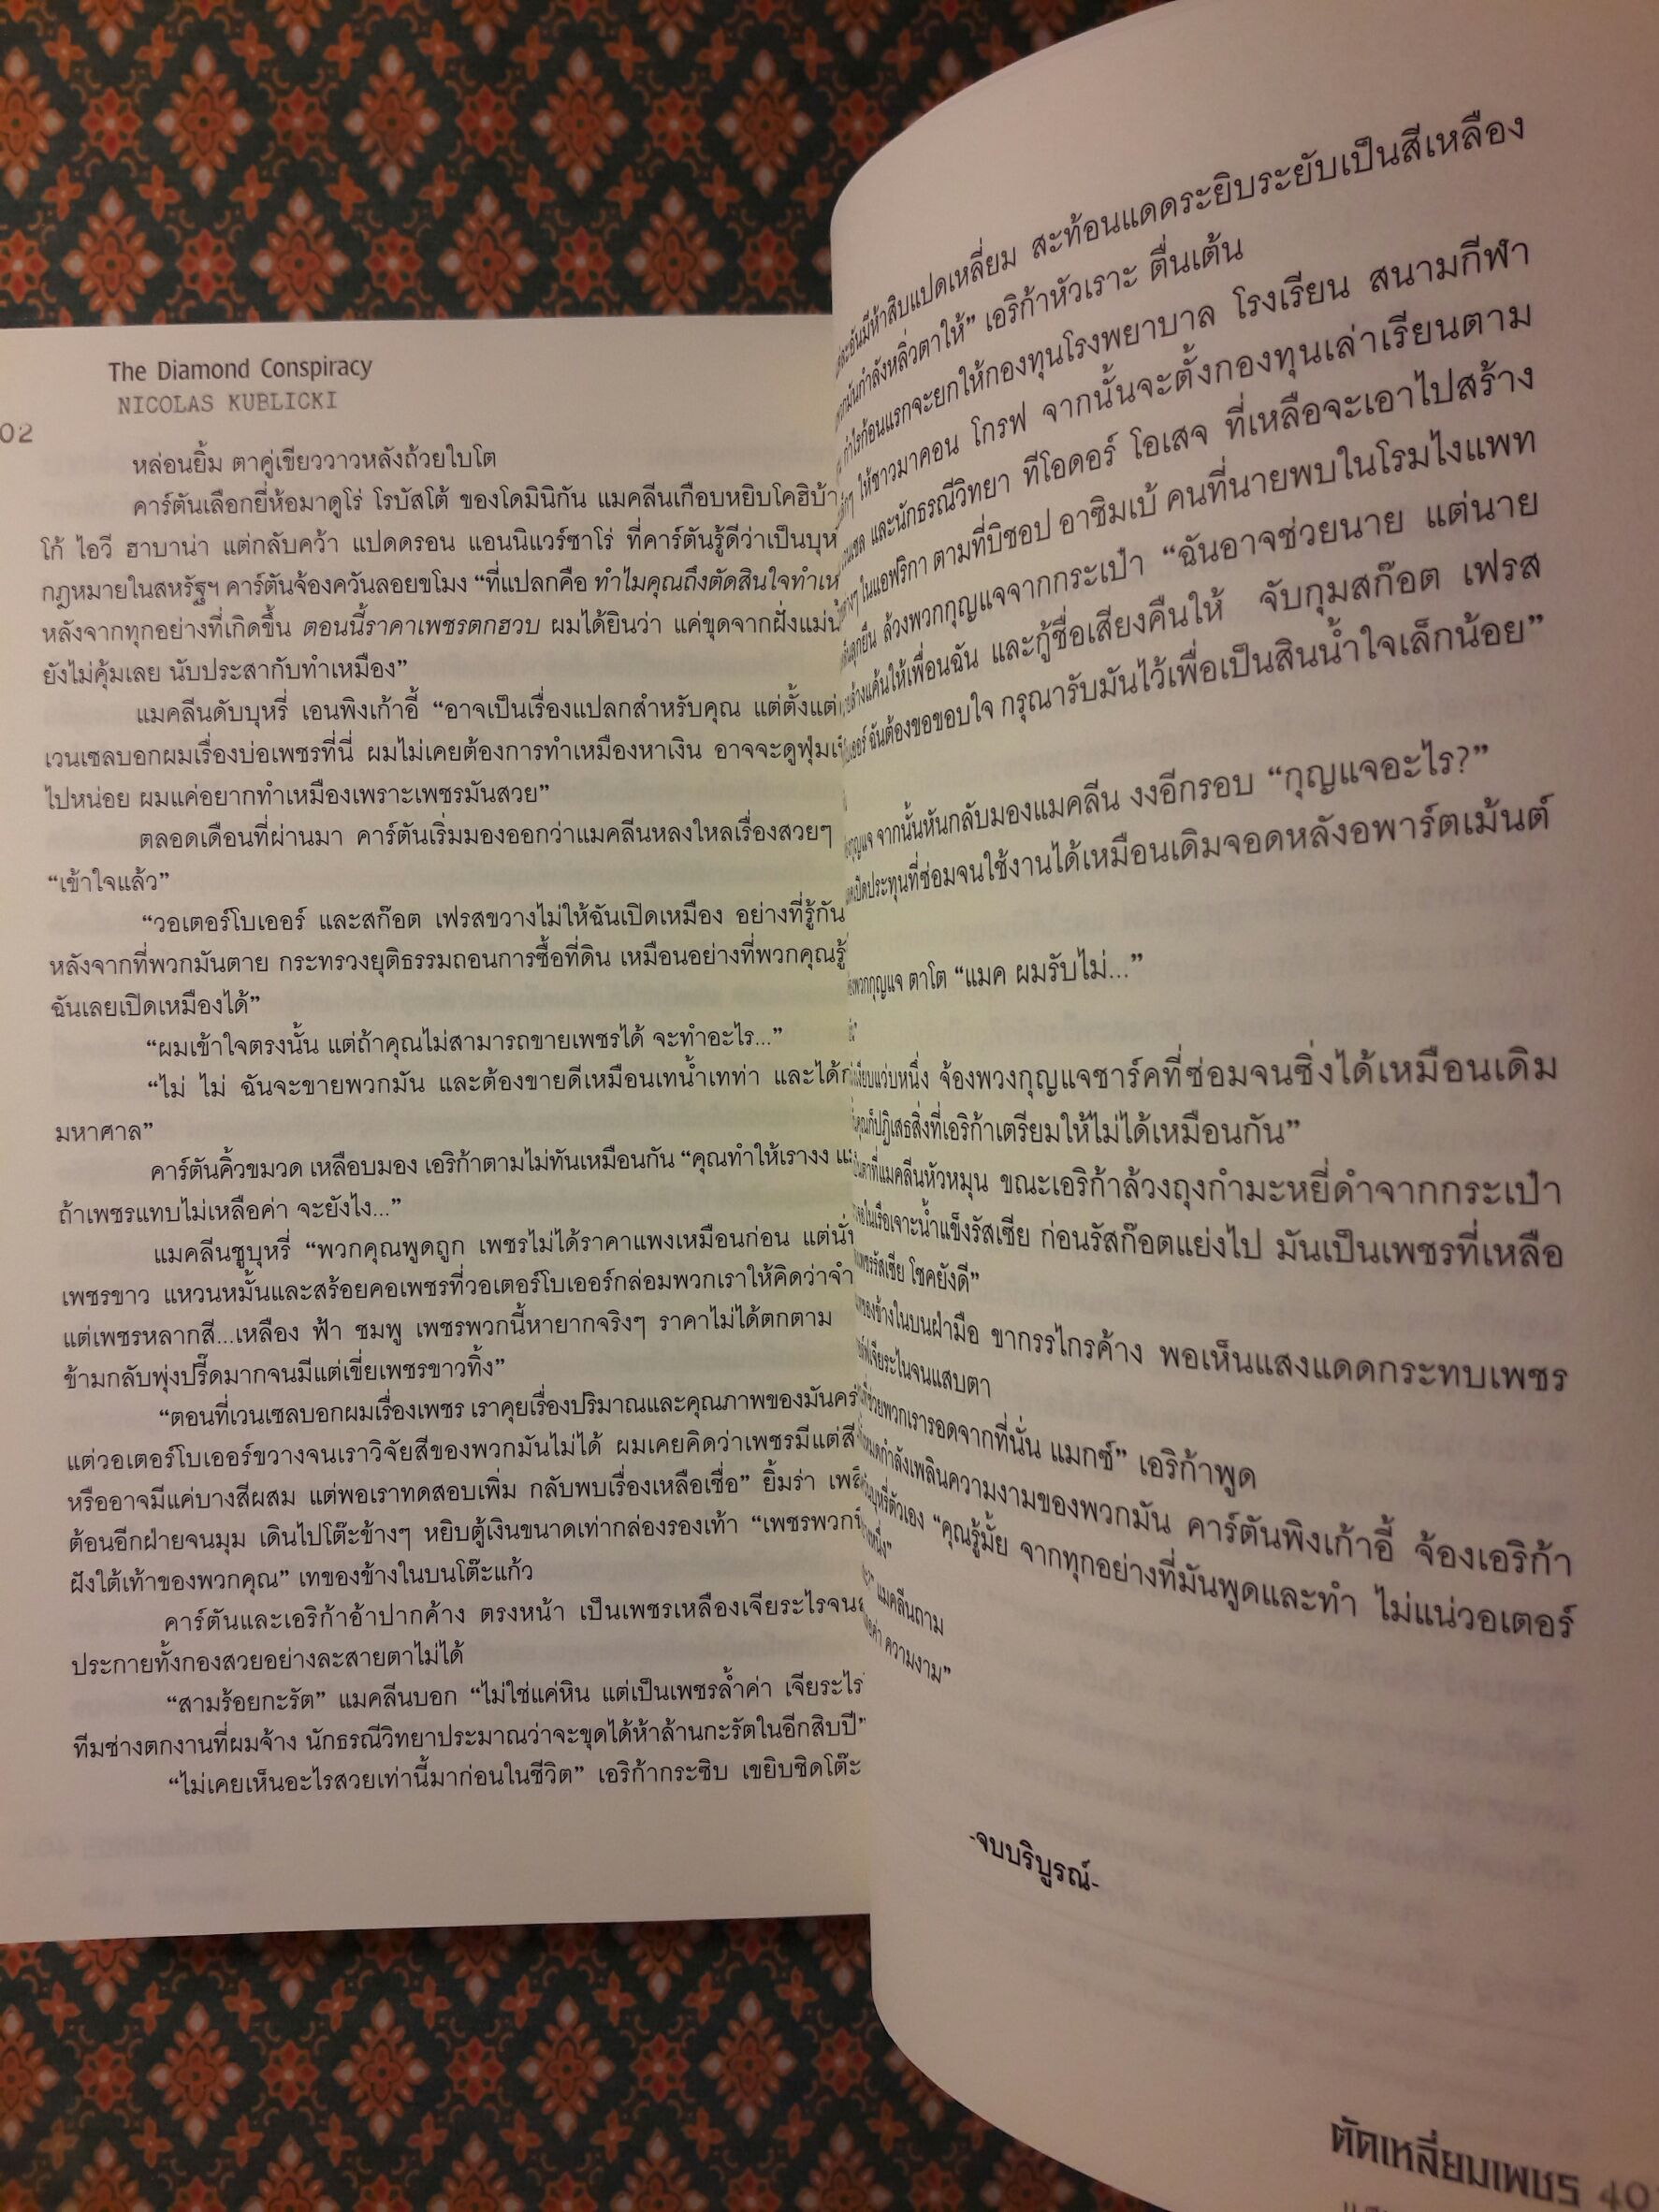 The Diamond Conspiracy
NICOLAS KUBLICKI
02
หล่อนยิ้ม ตาคู่เขียววาวหลังถ้วยใบโต
คาร์ตันเลือกยี่ห้อมาดูโร่ โรบัสโต้ ของโดมินิกัน แมคลีนเกือบหยิบโคฮิบ้า
โก้ ไอวี ฮาบาน่า แต่กลับคว้า แปดดรอน แอนนิแวร์ซาโร่ ที่คาร์ตันรู้ดีว่าเป็นบุห
กฎหมายในสหรัฐฯ คาร์ตันจ้องควันลอยขโมง “ที่แปลกคือ ทำไมคุณถึงตัดสินใจทำเห
หลังจากทุกอย่างที่เกิดขึ้น ตอนนี้ราคาเพชรตกฮวบ ผมได้ยินว่า แค่ขุดจากฝั่งแม่น้
ยังไม่คุ้มเลย นับประสากับทำเหมือง”
แมคลีนดับบุหรี่ เอนพิงเก้าอี้ “อาจเป็นเรื่องแปลกสำหรับคุณ แต่ตั้งแต่
เวนเซลบอกผมเรื่องบ่อเพชรที่นี่ ผมไม่เคยต้องการทำเหมืองหาเงิน อาจจะดูฟุ่ม
ไปหน่อย ผมแค่อยากทำเหมืองเพราะเพชรมันสวย”
ตลอดเดือนที่ผ่านมา คาร์ตันเริ่มมองออกว่าแมคลีนหลงใหลเรื่องสวยๆ
“เข้าใจแล้ว”
“วอเตอร์โบเออร์ และสก๊อต เฟรสขวางไม่ให้ฉันเปิดเหมือง อย่างที่รู้กัน
หลังจากที่พวกมันตาย กระทรวงยุติธรรมถอนการซื้อที่ดิน เหมือนอย่างที่พวกคุณรู้
ฉันเลยเปิดเหมืองได้”
“ผมเข้าใจตรงนั้น แต่ถ้าคุณไม่สามารถขายเพชรได้ จะทำอะไร...”
“ไม่ ไม่ ฉันจะขายพวกมัน และต้องขายดีเหมือนเทน้ำเทท่า และได้ก
มหาศาล”
คาร์ตันคิ้วขมวด เหลือบมอง เอริก้าตามไม่ทันเหมือนกัน “คุณทำให้เรางง
ถ้าเพชรแทบไม่เหลือค่า จะยังไง...”
แมคลีนชูบุหรี่ “พวกคุณพูดถูก เพชรไม่ได้ราคาแพงเหมือนก่อน แต่นั่
เพชรขาว แหวนหมั้นและสร้อยคอเพชรที่วอเตอร์โบเออร์กล่อมพวกเราให้คิดว่าจำ
แต่เพชรหลากสี...เหลือง ฟ้า ชมพู เพชรพวกนี้หายากจริงๆ ราคาไม่ได้ตกตาม
ข้ามกลับพุ่งปรี๊ดมากจนมีแต่เขี่ยเพชรขาวทิ้ง”
“ตอนที่เวนเซลบอกผมเรื่องเพชร เราคุยเรื่องปริมาณและคุณภาพของมันคร
แต่วอเตอร์โบเออร์ขวางจนเราวิจัยสีของพวกมันไม่ได้ ผมเคยคิดว่าเพชรมีแต่สี
หรืออาจมีแค่บางสีผสม แต่พอเราทดสอบเพิ่ม กลับพบเรื่องเหลือเชื่อ” ยิ้มร่า
ต้อนอีกฝ่ายจนมุม เดินไปโต๊ะข้างๆ หยิบตู้เงินขนาดเท่ากล่องรองเท้า “เพชรพวก
ฝังใต้เท้าของพวกคุณ” เทของข้างในบนโต๊ะแก้ว
คาร์ตันและเอริก้าอ้าปากค้าง ตรงหน้า เป็นเพชรเหลืองเจียระไรจน
ประกายทั้งกองสวยอย่างละสายตาไม่ได้
“สามร้อยกะรัต” แมคลีนบอก “ไม่ใช่แค่หิน แต่เป็นเพชรล้ำค่า เจียระไร
ทีมช่างตกงานที่ผมจ้าง นักธรณีวิทยาประมาณว่าจะขุดได้ห้าล้านกะรัตในอีกสิบปี”
“ไม่เคยเห็นอะไรสวยเท่านี้มาก่อนในชีวิต” เอริก้ากระซิบ เขยิบชิดโต๊ะ
ละอันมีห้าสิบแปดเหลี่ยม สะท้อนแดดระยิบระยับเป็นสีเหลือง
กมันกำลังหลิ่วตาให้” เอริก้าหัวเราะ ตื่นเต้น
กำไรก้อนแรกจะยกให้กองทุนโรงพยาบาล โรงเรียน สนามกีฬา
ให้ชาวมาคอน โกรฟ จากนั้นจะตั้งกองทุนเล่าเรียนตาม
และนักธรณีวิทยา ทีโอดอร์ โอเสจ ที่เหลือจะเอาไปสร้าง
ในแอฟริกา ตามที่บิชอป อาซิมเบ้ คนที่นายพบในโรมไงแพท
ลุกยืน ล้วงพวกกุญแจจากกระเป๋า “ฉันอาจช่วยนาย แต่นาย
ล้างแค้นให้เพื่อนฉัน และกู้ชื่อเสียงคืนให้ จับกุมสก๊อต เฟรส
ฉันต้องขอขอบใจ กรุณารับมันไว้เพื่อเป็นสินน้ำใจเล็กน้อย”
กุญแจ จากนั้นหันกลับมองแมคลีน งงอีกรอบ “กุญแจอะไร?”
เปิดประทุนที่ซ่อมจนใช้งานได้เหมือนเดิมจอดหลังอพาร์ตเม้นต์
พวกกุญแจ ตาโต “แมค ผมรับไม่...”
เงียบแว่บหนึ่ง จ้องพวงกุญแจชาร์คที่ซ่อมจนซิ่งได้เหมือนเดิม
คุณก็ปฏิเสธสิ่งที่เอริก้าเตรียมให้ไม่ได้เหมือนกัน”
ตาที่แมคลีนหัวหมุน ขณะเอริก้าล้วงถุงกำมะหยี่ดำจากกระเป๋า
ในเรือเจาะน้ำแข็งรัสเซีย ก่อนรัสก๊อตแย่งไป มันเป็นเพชรที่เหลือ
เพชรรัสเซีย โชคยังดี”
ของข้างในบนฝ่ามือ ขากรรไกรค้าง พอเห็นแสงแดดกระทบเพชร
เจียระไนจนแสบตา
ช่วยพวกเรารอดจากที่นั่น แมกซ์” เอริก้าพูด
กำลังเพลินความงามของพวกมัน คาร์ตันพิงเก้าอี้ จ้องเอริก้า
บุหรี่ตัวเอง “คุณรู้มั้ย จากทุกอย่างที่มันพูดและทำ ไม่แน่วอเตอร์
หนึ่ง”
แมคลีนถาม
ค่า ความงาม”
-จบบริบูรณ์-
ตัดเหลี่ยมเพชร 40